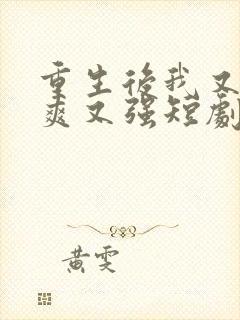 重生後我又
爽又強短劇
黃雯